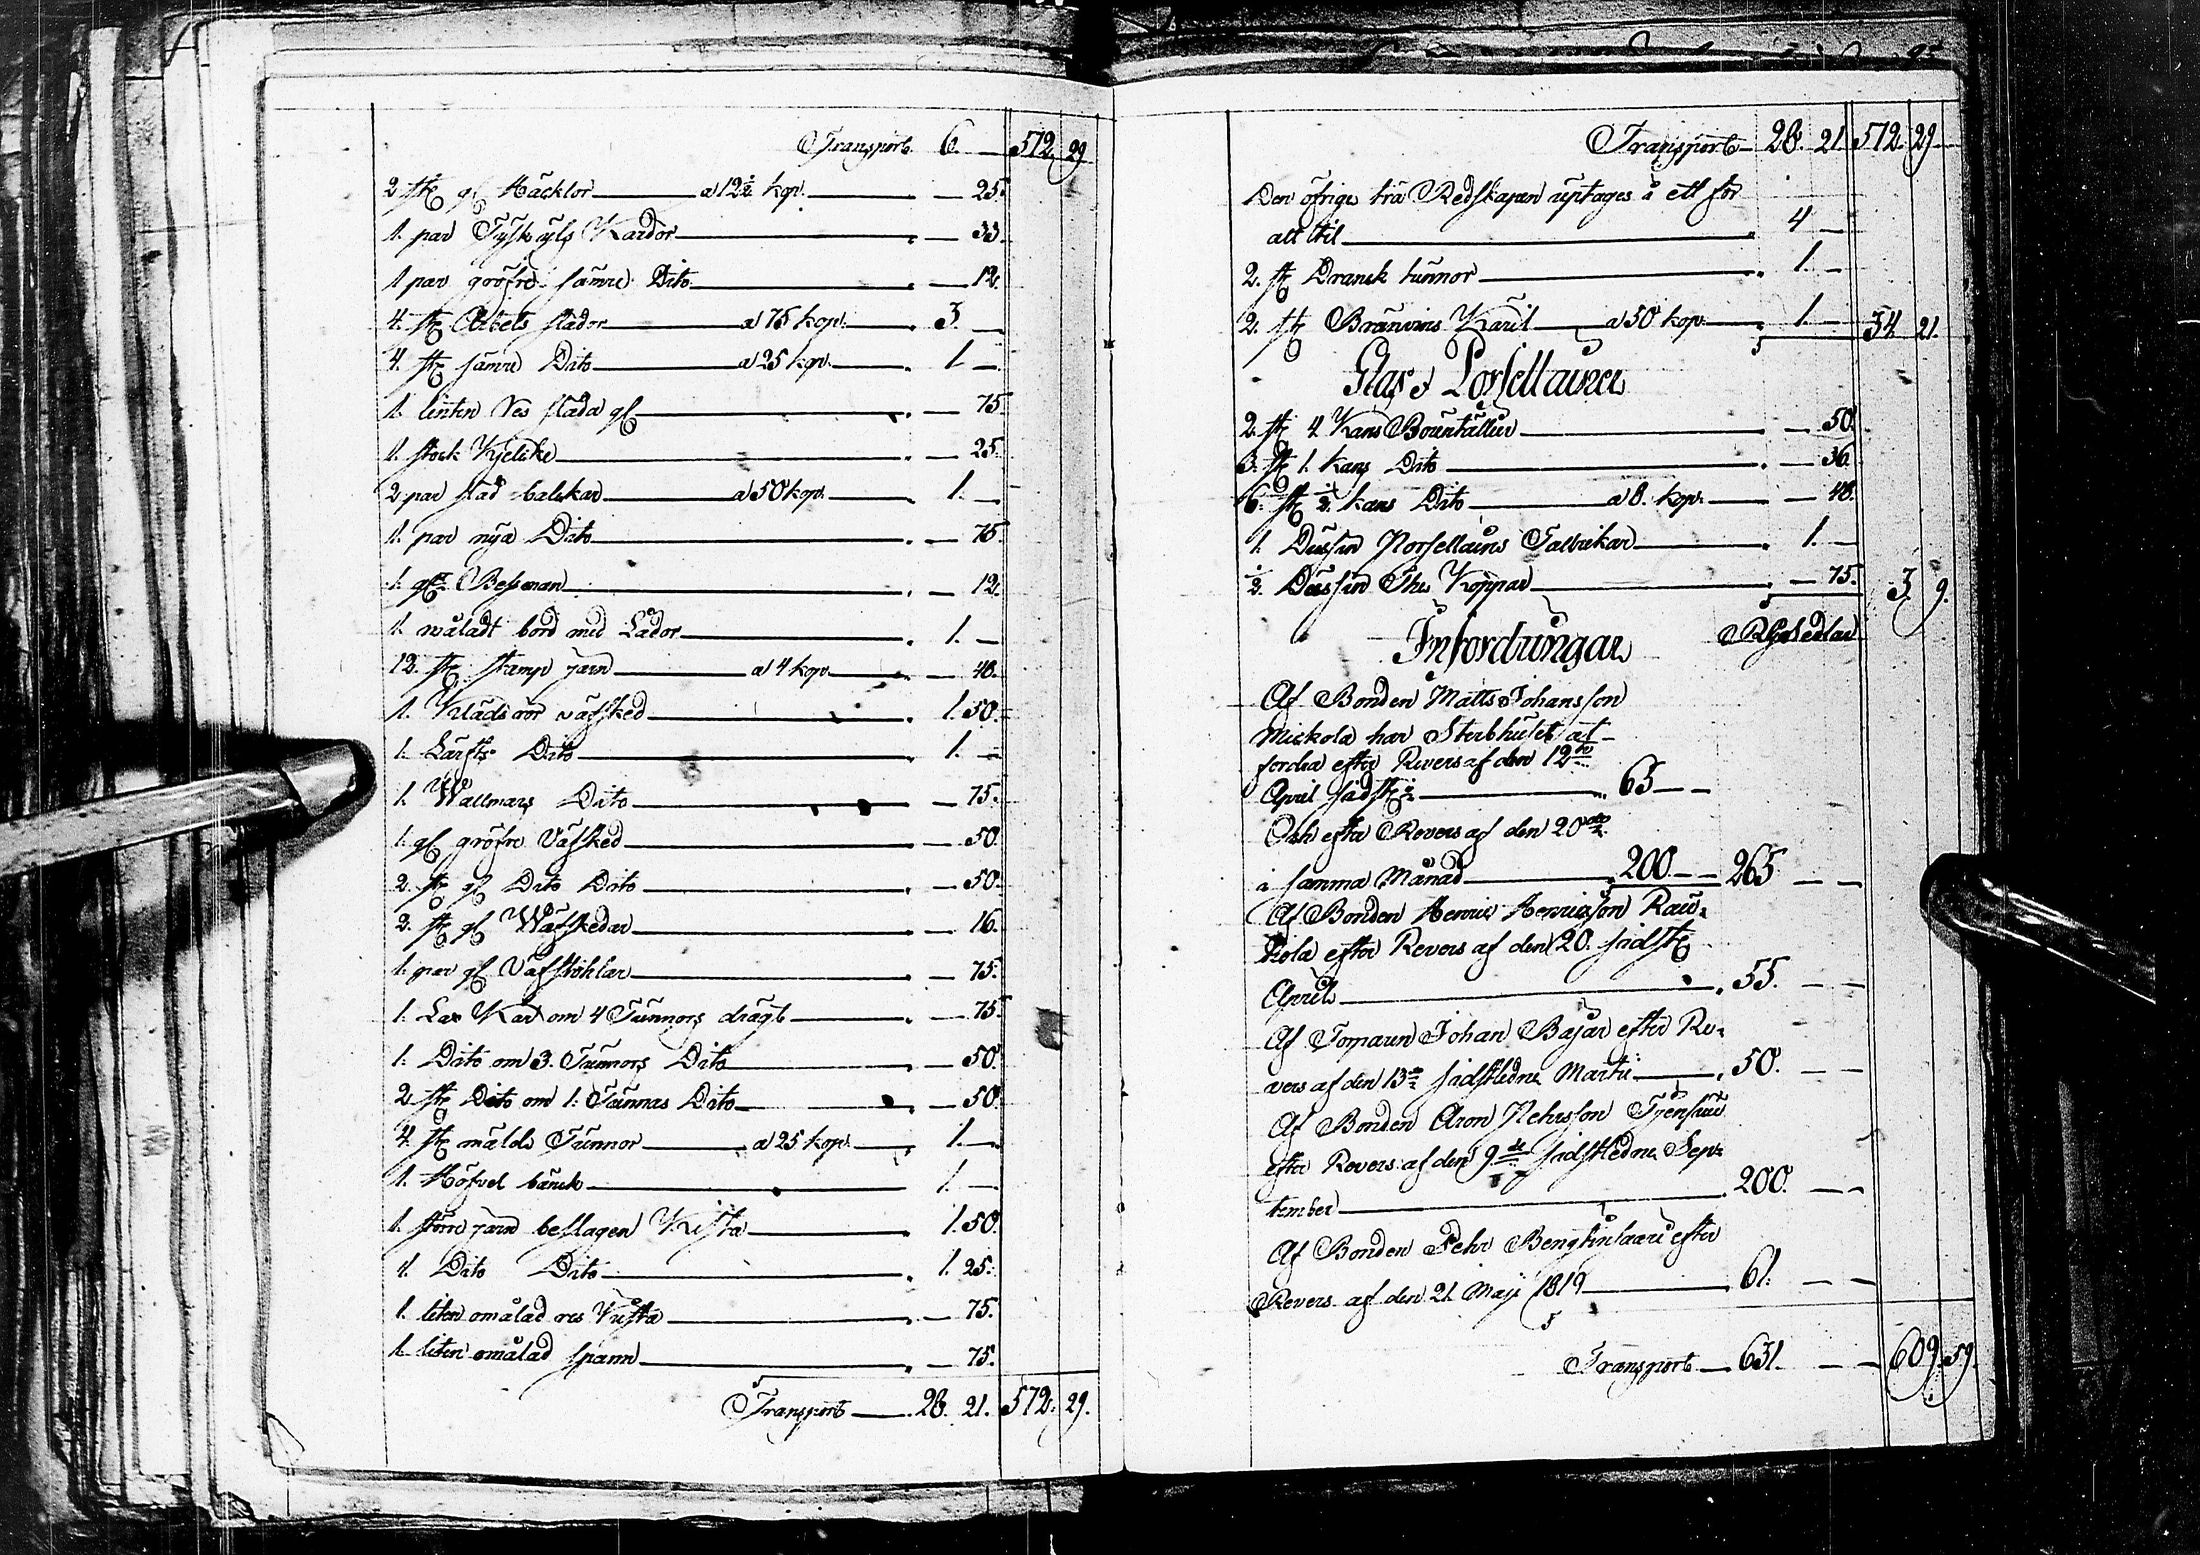 Transport 6. — 572. 29
2 st: gl Häcklor a 12½ kop. — 25.
1. par Tysk ryss Kardor — 33.
1 par gröfre sämre Dito — 12.
4. st: Arbets slädor a 75 kop. 3. —
4. st: sämre Dito a 25 kop. 1 —
1. liten Res släda gl — 75.
1. stock Kjelke — 25.
2 par släd balckar a 50 kop. 1. —
1. par nya Dito — 75.
1. gl: Bessman — 12.
1. måladt bord med Lådor 1. —
12. st: stamp järn a 4 kop — 48.
1. Kläds rör väfsked 1. 50.
1. Lärfts Dito 1. —
1. Wallmars Dito — 75.
1. gl gröfre Väfsked — 50.
2. st: gl Dito Dito — 50.
2. st: gl Wäfskedar — 16.
1. par gl Väfstohlar — 75.
1. Lax Kar om 4 Tunnors drägt — 75.
1. Dito om 3. Tunnors Dito — 50.
2 st: Dito om 1. Tunnas Dito — 50.
4. st: målde Tunnor a 25 kop. 1. —
1. Höfvel bänck 1. —
1. större järn beslagen Kista 1. 50.
1. Dito Dito 1. 25.
1. liten omålad res Kista — 75.
1. liten omålad spann — 75.
Transport 28. 21. 572. 29.
Transport 28. 21 572. 29.
Den öfrige trä Redskapen uptages i ett för
alt till 4 —
2. st: Dranck tunnor 1. —
2. st: Bränvins Käril a 50 kop. 1. — 34. 21.
Glas & Porsellainer
2. st: 4 Kans Bouteiller — 50.
3. st: 1. kans Dito — 36.
6. st: ½ kans Dito a 8. kop. — 48.
1. Dussin Porsellains Tallrikar 1. —
½ Dussin The Koppar — 75. 3. 9.
Infordringar R:Gsedlar
Af Bonden Matts Johansson
Mickola har Sterbhuset at
fordra efter Revers af den 12te
April sidst: 65 — —
Och efter Revers af den 20de
i samma Månad 200 — — 265 — —
Af Bonden Henric Henricsson Rau-
tiola efter Revers af den 20. sidst:
April 55. — —
Af Torparen Johan Bajar efter Re-
vers af den 13de sidstledne Martii 50. — —
Af Bonden Aron Pehrsson
efter Revers af den 9de sidstledne Sep-
tember 200. — —
Af Bonden Pehr efter
Revers af den 21. Maji 1819 61. — —
Transport 631. — — 609. 59.